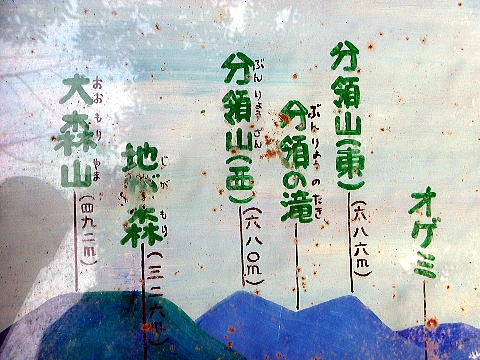 大森山
おおもりやま
(四九二m)
地が森
じがもり
(三二六m)
分領山(西)
ぶんりょうざん
(六八〇m)
分領の滝
ぶんりょうのたき
分領山(東)
(六八六m)
オゲミ